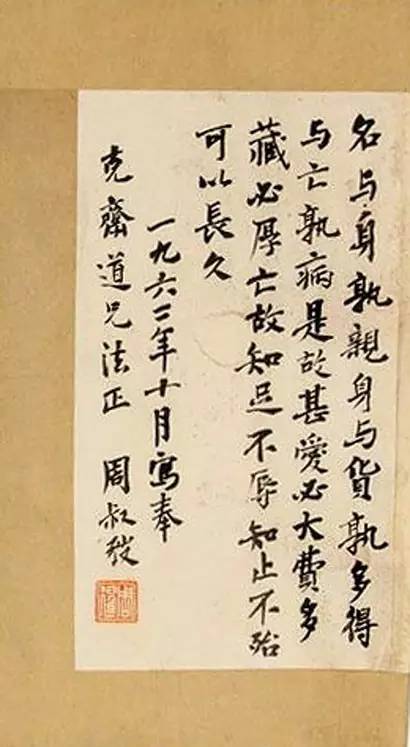 名与身孰親身与貨孰多得
与亡孰病是故甚愛必大費多
藏必厚亡故知足不辱知止不殆
可以長久
一九六三年十月寫奉
克齋道兄法正 周叔弢